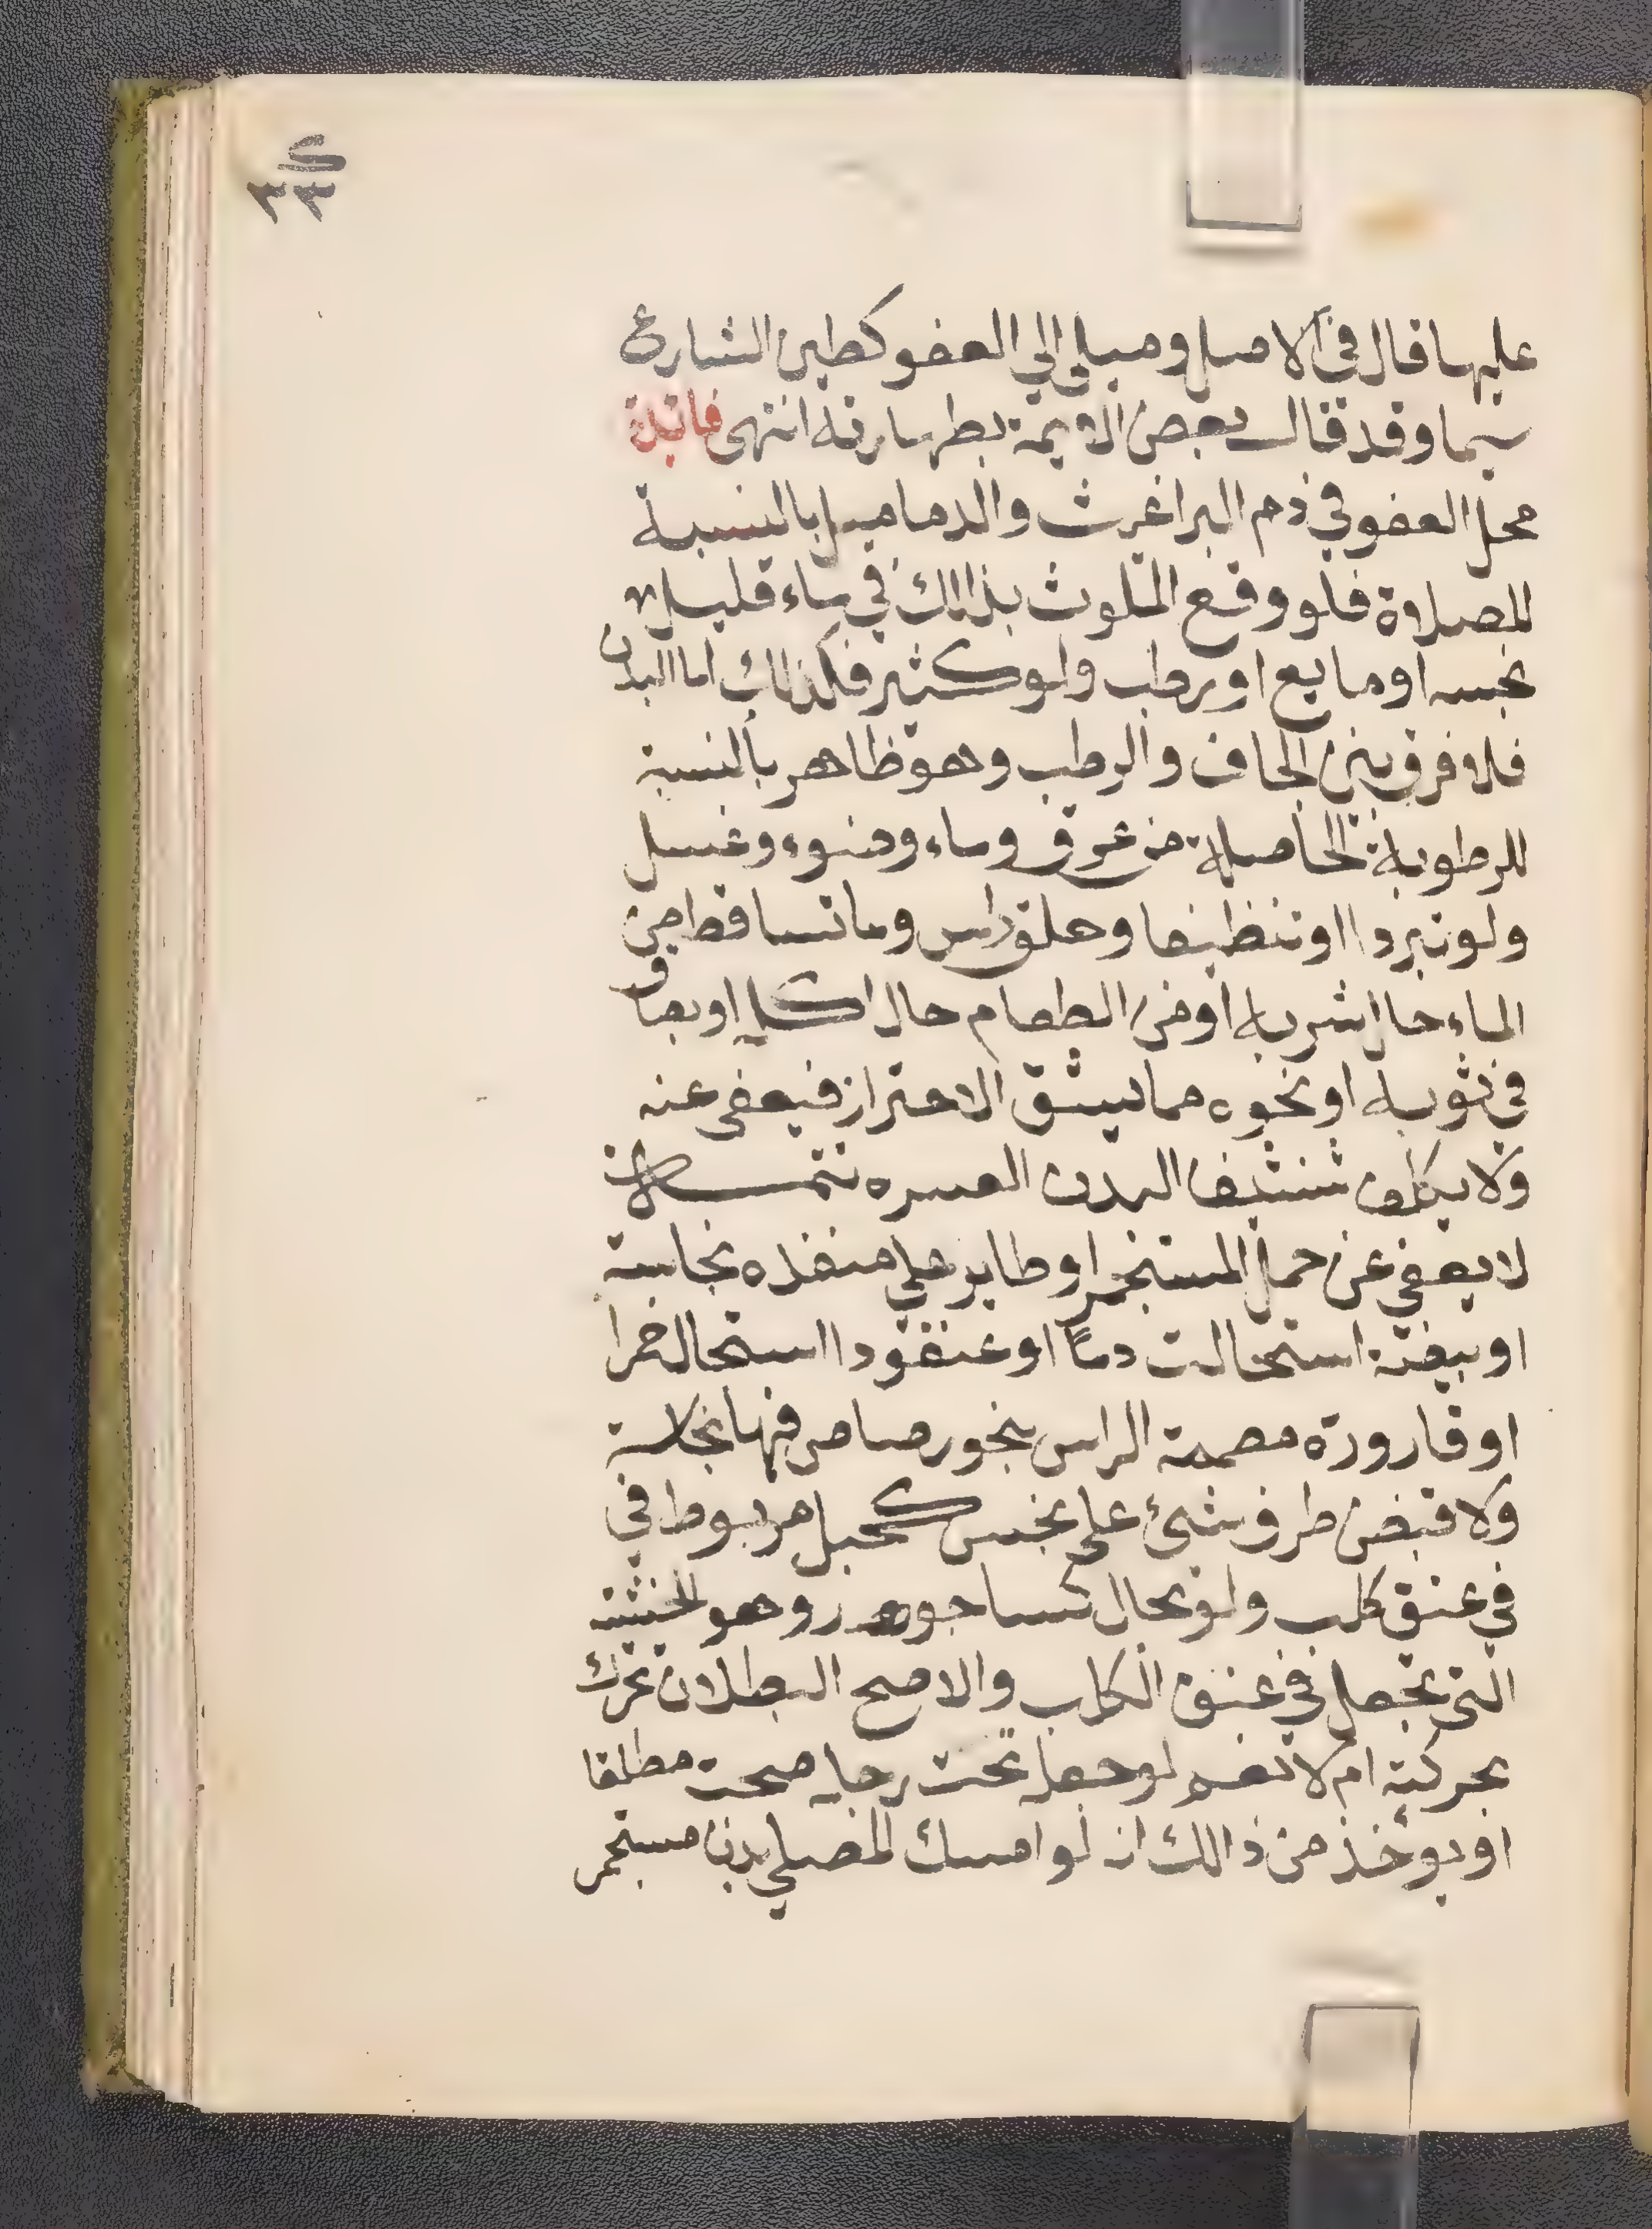 ٣٣
عليها قال في الاصل وميلي الي العفو كطين الشارع
سيما وقد قال بعض الايمة بطهارته انتهى فائدة
محل العفو في دم البراغيث والدماميل بالنسبة
للصلاة فلو وقع المتلوث بذالك في ماء قليل
نجسه او مايع او رطب ولو كثير فكذالك اما البدن
فلا فرق بين الجاف والرطب وهو ظاهر بالنسبة
للرطوبة الحاصلة من عرق وماء وضوء وغسل
ولو تبردا او تنظيفا وحلق راس وما تساقط من
الماء حال شربه او من الطعام حال اكله او بصاق
في ثوبه او نحوه مما يشق الاحتراز فيعفى عنه
ولا يكلف تنشيف البدن لعسره تتمــــات
لا يعفى عن حمل المستجمر او طاير علي منفذه نجاسة
او بيضة استحالت دما او عنقودا استحال خمرا
او قارورة مصمتة الراس بنحو رصاص فيها نجاسة
ولا قبض طرف شئ على نجس كحبل مربوط في
في عنق كلب ولو بحال كساجور وهو الخشبة
التى تجعل في عنق الكلب والاصح البطلان تحرك
بحركته ام لا نعم لو جعله تحت رجله صحت مطلقا
او يوخذ من ذالك انه لو امسك المصلي بدن مستجمر